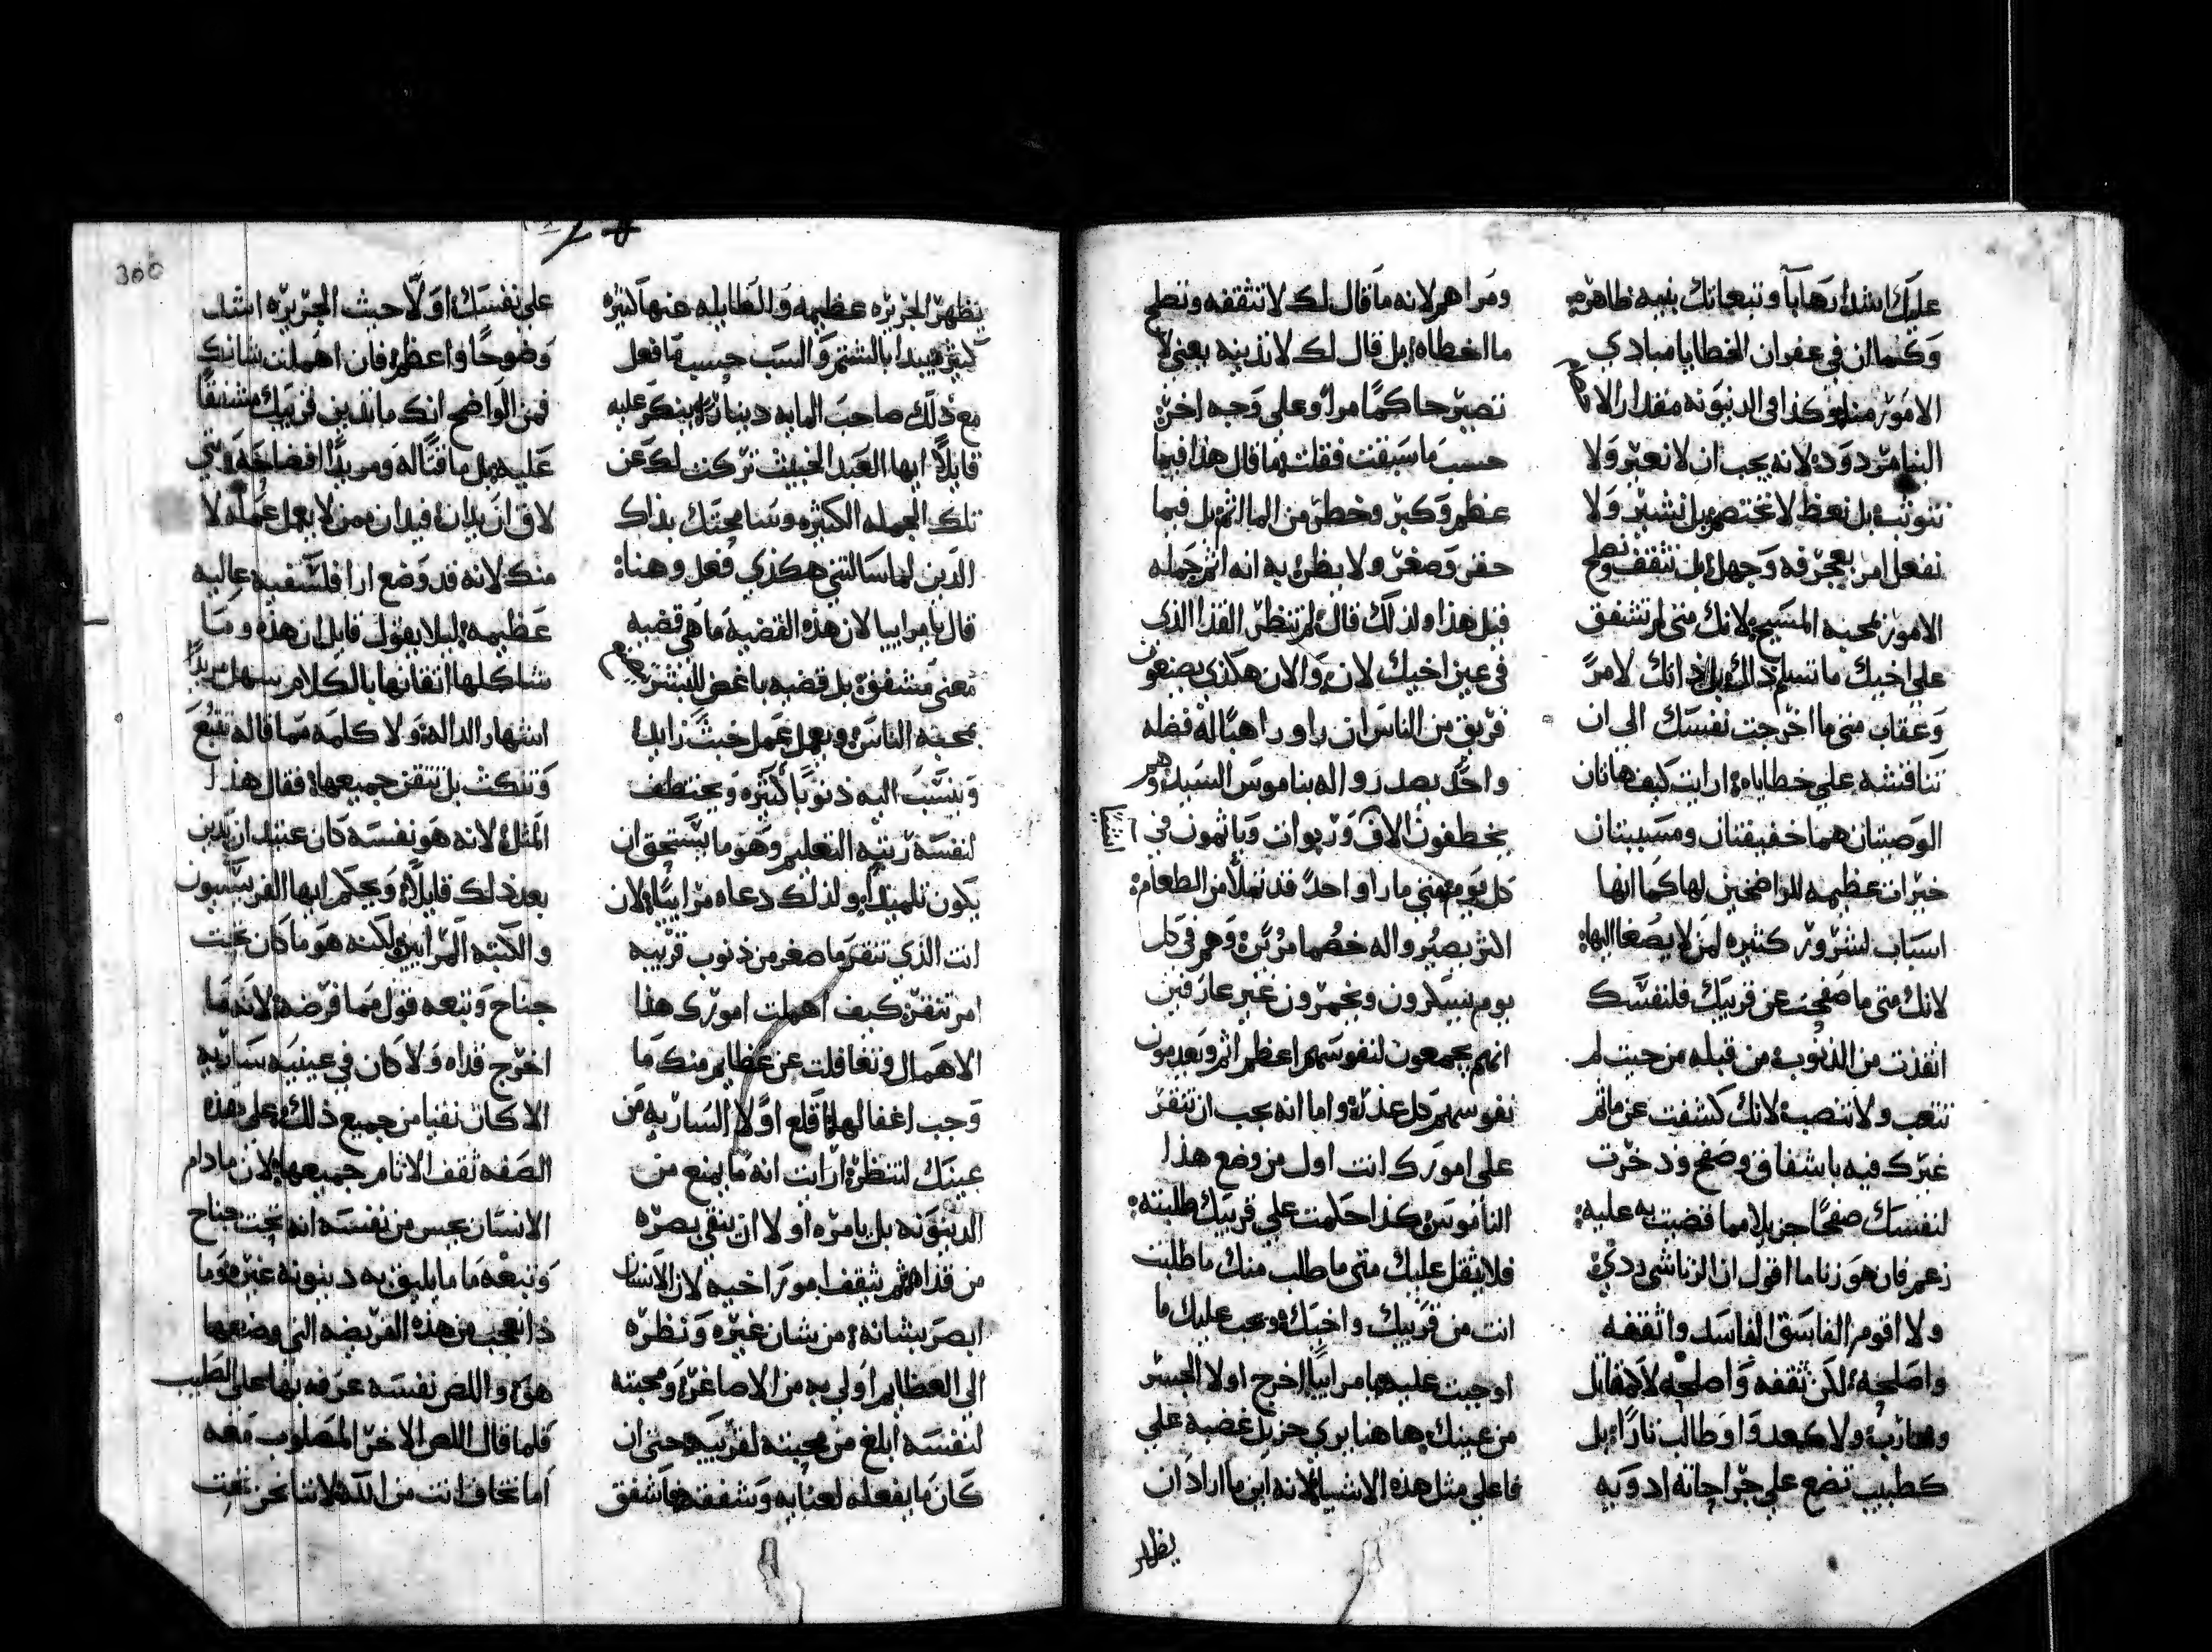 عليك اشد ارهابا وتبعاتك بينه ظاهره
وكما ان في غفران الخطايا مبادي
الامور منا وكذا في الدينونه مقدار الاثام
البنا مردوده لانه يجب ان لا نعير ولا
نتوثب بل نعظ لا نختصم بل نشير ولا
نفعل امر بعجرفه وجهل بل نثقف ونصلح
الامور بمحبه المسيح لانك متى لم تشفق
على اخيك ما تسلم ذاك بل ذاتك لامر
وعقاب متى ما اخرجت نفسك الى ان
تناقشه على خطاياه ارايت كيف هاتان
الوصيتان هما خفيفتان ومسببتان
خيرات عظيمه للراضخين لها كما انها
اسباب لشرور كثيره لمن لا يصغا اليها
لانك متى ما صفحت عن قريبك فلنفسك
انقذت من الذنوب من قبله من حيث لم
تتعب ولا تنصب لانك كشفت عن ماثم
غيرك فيه باشفاق وصفح ودخرت
لنفسك صفحا جزيلا مما قضيت به عليه
زعم فان هو زنا ما اقول ان الزنا شي ردي
ولا اقوم الفاسق الفاسد واثقفه
واصلحه لكن ثقفه واصلحه لا كمقاتل
ومحارب ولا كعدوا وطالب ثارا بل
كطبيب تضع على جراحاته ادويه
ومراهم لانه ما قال لك لا تثقفه وتصلح
ما اخطاه بل قال لك لا تدينه يعني لا
تصير حاكما مرا وعلى وجه اخر
حسب ما سبقت فقلت ما قال هذا فيما
عظم وكبر وخطر من الماثم بل فيما
حقر وصغر ولا يظن به انه اثم جمله
قبل هذا ولذلك قال لم تنظر القذا الذي
في عين اخيك لان والان هكذي يصنعون
فريق من الناس ان راو راهبا له فضله
واحد بصدروا له بناموس السيد وهم
يخطفون الاف وربوات وياثمون في اشيا
كل يوم متى ما راوا احد قد تملا من الطعام
اكثر يصيروا له خصما مر وهم في كل
يوم يسكرون ويخمرون غير عارفين
انهم يجمعون لنفوسهم اعظم اثم ويعدمون
نفوسهم كل عذر واما انه يجب ان تنقر
على امورك انت اول من وضع هذا
الناموس كذا حكمت على قريبك طلبته
فلا يثقل عليك متى ما طلب منك ما طلبت
انت من قريبك واخيك ويجب عليك ما
اوجبت عليه يا مراييا اخرج اولا الجسر
من عينك هاهنا يري جزيل غضبه على
فاعلي مثل هذه الاشيا لانه اين ما اراد ان
يظهر
يظهر الجريره عظيمه والمطالبه عنها كثيره
كبير يبدا بالشتم والسب حسب ما فعل
مع ذلك صاحب المايه دينار ينكر عليه
قايلا ايها العبد الخبيث تركت لك عن
تلك الجمله الكثيره وسامحتك بذاك
الدين لما سالتني هكذي فعل وهناه
قال يا مراييا لان هذه القضيه ما هي قضيه
معني مشفق بل قضيه باغض للبشر
بمحبه الناس ويعمل عمل خبث زايد
وينسب اليه ذنوبا كثيره ويختطف
لنفسه رتبه التعليم وهو ما يستحق ان
يكون تلميذا ولذلك دعاه مراييا لان
انت الذي تنقر ما صغر من ذنوب قريبه
امر تنقر كيف اهملت امورك هذا
الاهمال وتغافلت عن عظايم منك ما
وجب اغفالها اقلع اولا الساريه من
عينك لتنظر ارايت انه ما يمنع من
الدينونه بل يامره اولا ان ينقي بصره
من قذاه ثم يثقف امور اخيه لان الانسان
ابصر بشانه من شان غيره ونظره
الى العظايم اولي به من الاصاغر ومحبته
لنفسه ابلغ من محبته لقريبه حتى ان
كان ما يفعله لعنايه وشفقه فاشفق
على نفسك اولا حيث الجريره اشد
وضوحا واعظم فان اهملت شانك
فمن الواضح انك ما تدين قريبك مشفقا
عليه بل ماقتا له ومريدا افضاحه
لاق ان يدان فيدان ممن لا يعمل عمله لا
منك لانه قد وضع ارا فلسفيه عاليه
عظيمه ليلا يقول قايل ان هذه وما
شاكلها اتقانها بالكلام سهل مريدا
اشهار الداله ولا كلمه مما قاله تتبع
وتنكث بل تتقن جميعها فقال هذا
المثل لانه هو نفسه كان عتيد ان يدين
بعد ذلك قايلا ويحكم ايها الفريسيون
والكتبه المرايين لكنه هو ما كان تحت
جناح وتبعه قول مما فرضه لانه ما
اخرج قذاه ولا كان في عينيه ساريه
الا كان نقيا من جميع ذلك على هذه
الصفه ثقف الاثام جميعها لان ما دام
الانسان يحس من نفسه انه تحت جناح
وتبعه ما يليق به دينونه غيره وما
ذا يعجب من هذه الفريضه التي وضعها
هو واللص نفسه عرفه بها على الصليب
فلما قال اللص الاخر المصلوب معه
اما تخاف انت من الله لاننا نحن تحت